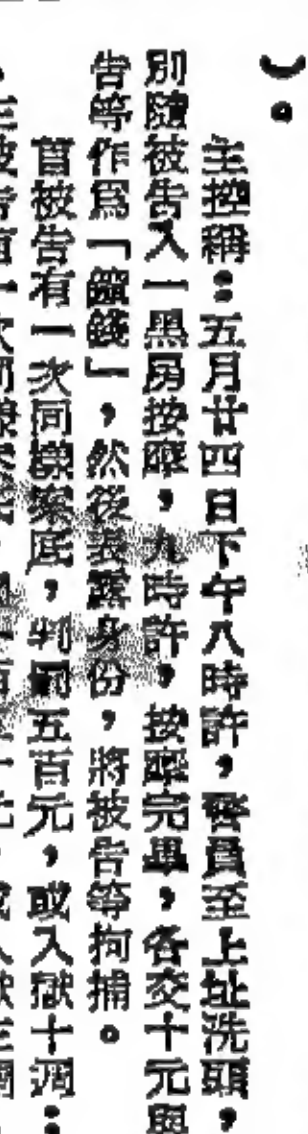 ）。
主控稱：五月廿四日下午八時許，警員至上址洗頭，
別隨被告入一黑房按摩，九時許，按摩完畢，各交十元與
告等作爲「餽錢」，然後表露身份，將被告等拘捕。
首被告有一次同樣案底，判罰五百元，或入獄十週；